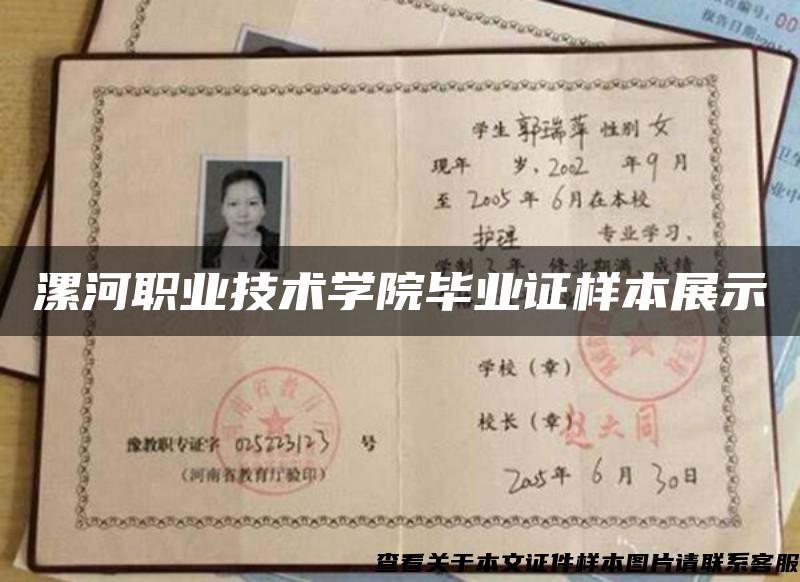 学生郭瑞萍性别女
现年 岁，2002 年9月
至2005年6月在本校
护理 专业学习，
学制3年，修业期满，成绩
漯河职业技术学院毕业证样本展示
学校（章）
校长（章）赵大同
豫教职专证字 025223123 号
（河南省教育厅验印）
2005年6月30日
查看关于本文证件样本图片请联系客服
报告日期